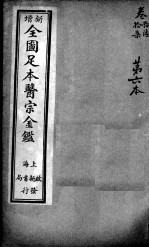 新增
全圖足本醫宗金鑑
上海
啟新書局
發行
卷
第六本